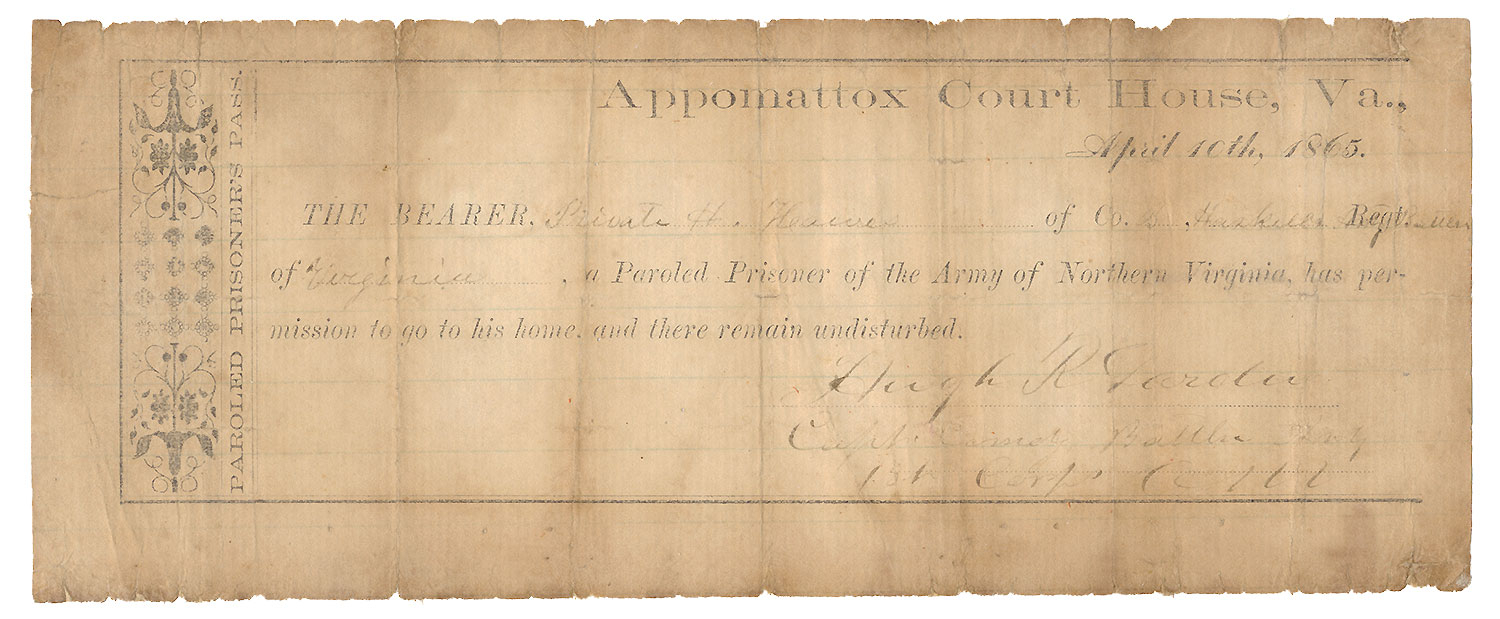 PAROLED PRISONER'S PASS.
Appomattox Court House, Va.,
April 10th, 1865.
THE BEARER, Private H. of Co. Regt.
of Virginia, a Paroled Prisoner of the Army of Northern Virginia, has per-
mission to go to his home, and there remain undisturbed.
Hugh R Garden
Capt Comdg
1st Corps